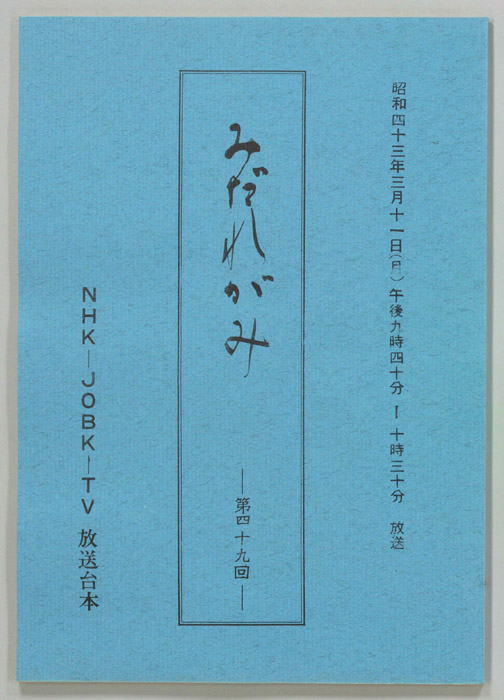 昭和四十三年三月十一日(月) 午後九時四十分 ― 十時三十分 放送
みだれがみ
―第四十九回―
NHK―JOBK―TV 放送台本